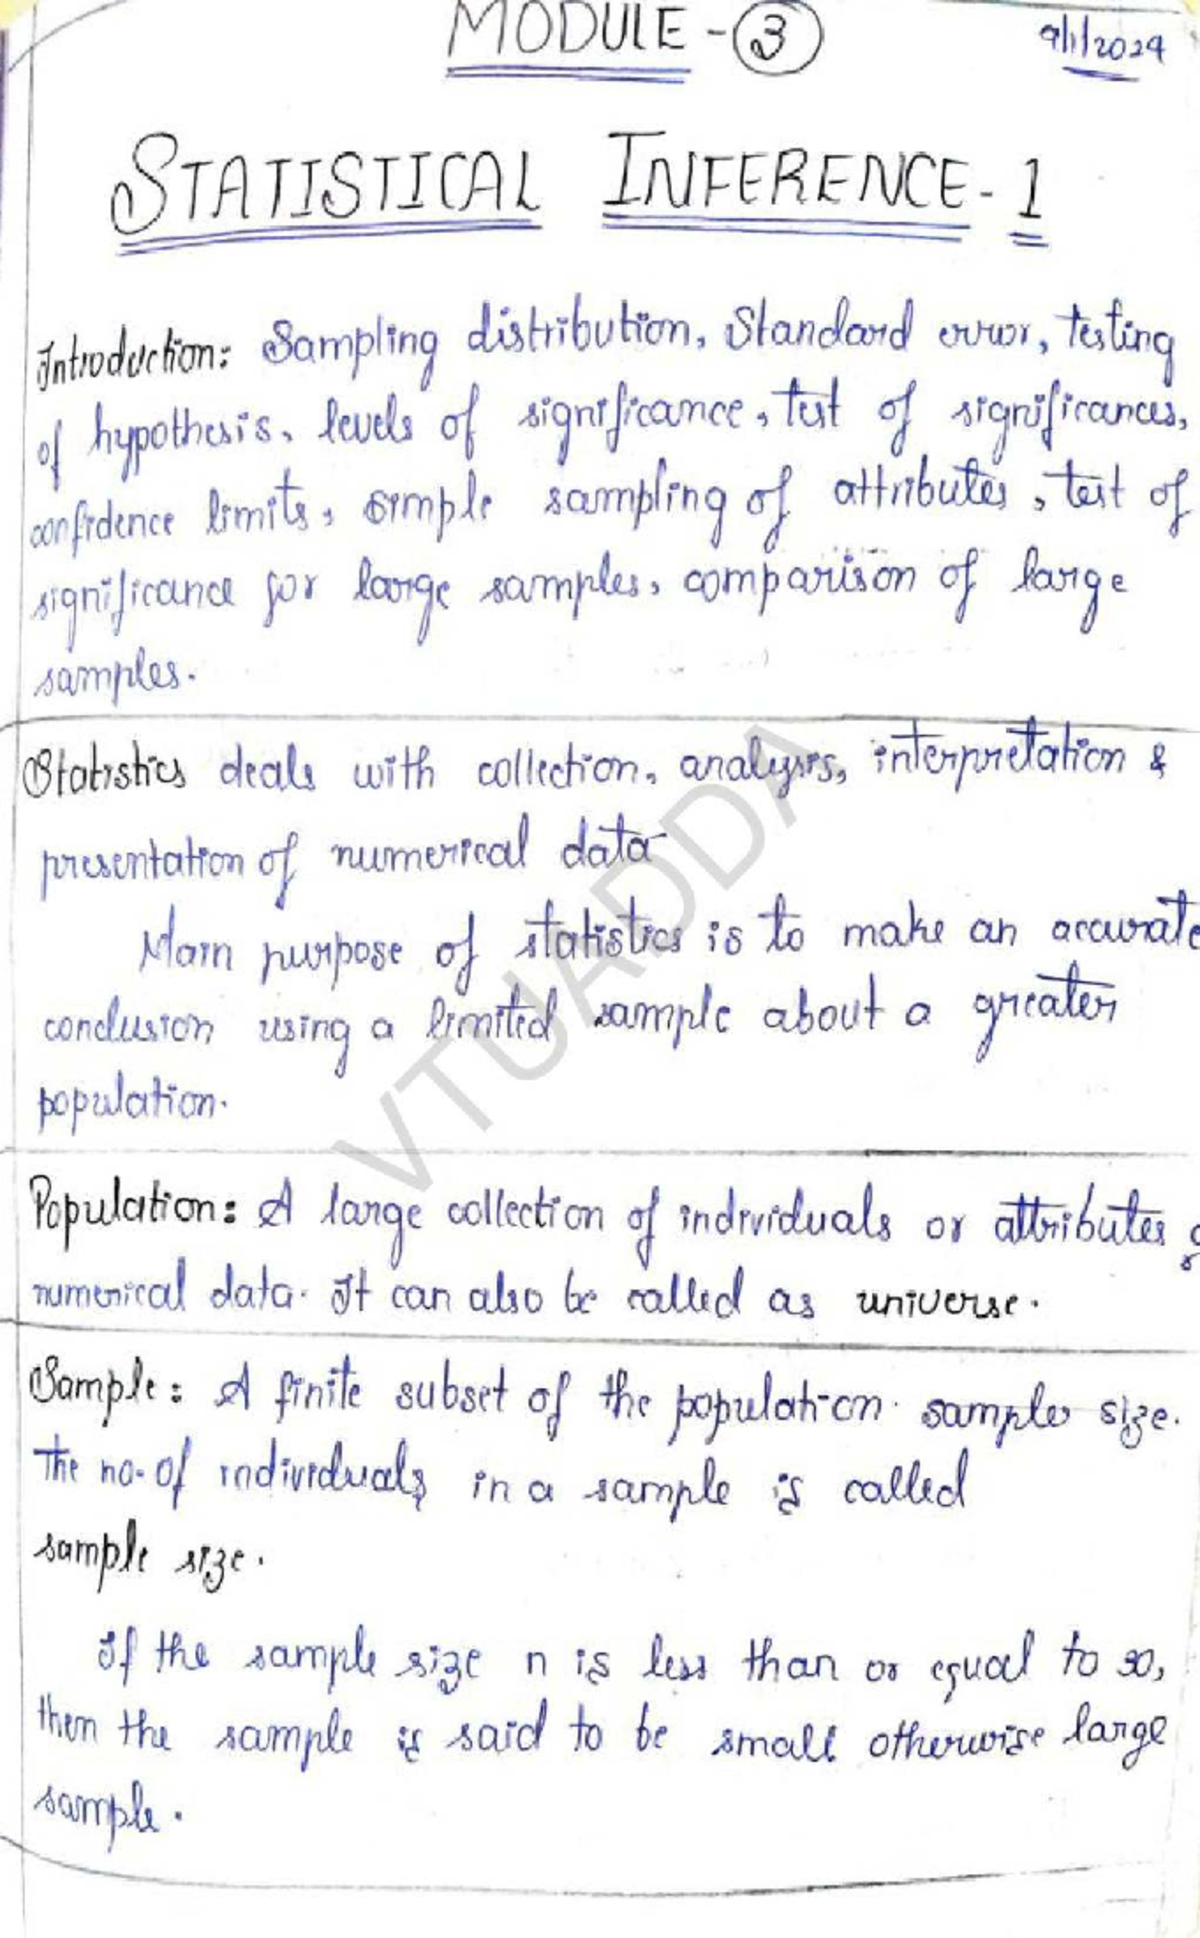 MODULE - 3
9/1/2024
STATISTICAL INFERENCE - 1
Introduction: Sampling distribution, Standard error, testing
of hypothesis, levels of significance, test of significances,
confidence limits, simple sampling of attributes, test of
significance for large samples, comparison of large
samples.
Statistics deals with collection, analysis, interpretation &
presentation of numerical data
Main purpose of statistics is to make an accurate
conclusion using a limited sample about a greater
population.
Population: A large collection of individuals or attributes
numerical data. It can also be called as universe.
Sample: A finite subset of the population. sample size.
The no. of individuals in a sample is called
sample size.
If the sample size n is less than or equal to 30,
then the sample is said to be small otherwise large
sample.
VTUADDA